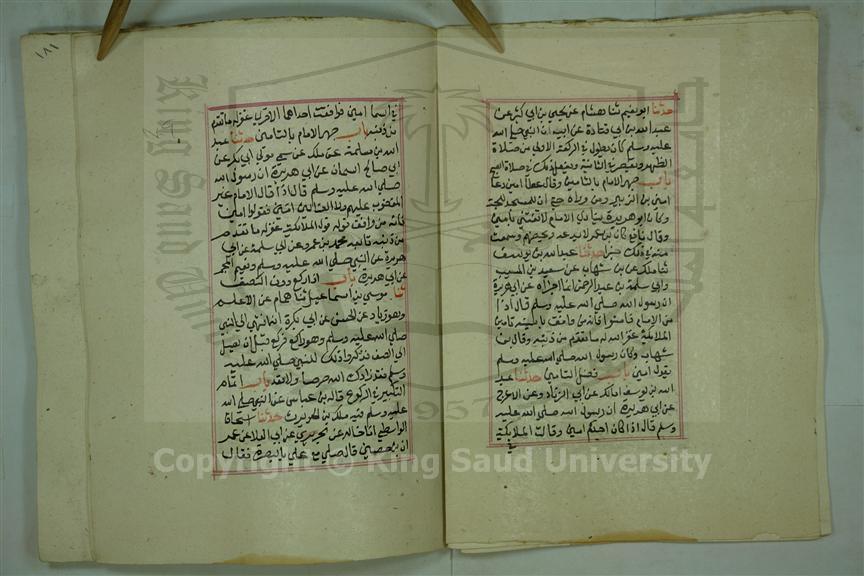 حدثنا ابو نعيم ثنا هشام عن يحيى بن ابي كثير عن
عبد الله بن ابي قتادة عن ابيه ان النبي صلى الله
عليه وسلم كان يطول في الركعة الاولى من صلاة
الظهر ويقصر في الثانية ويفعل ذلك في صلاة الصبح
باب جهر الامام بالتامين وقال عطا امين دعا
امن بن الزبير ومن وراه حتى ان للمسجد للجة
وكان ابو هريرة ينادي الامام لا تفتني بامين
وقال نافع كان بن عمر لا يدعه ويحضهم وسمعت
منه في ذلك خبرا حدثنا عبد الله بن يوسف
ثنا ملك عن بن شهاب عن سعيد بن المسيب
وابي سلمة بن عبد الرحمن انهما اخبراه عن ابي هريرة
ان رسول الله صلى الله عليه وسلم قال اذا
امن الامام فامنوا فانه من وافق تامينه تامين
الملايكة غفر الله له ما تقدم من ذنبه وقال بن
شهاب وكان رسول الله صلى الله عليه وسلم
يقول امين باب فضل التامين حدثنا عبد
الله بن يوسف انا ملك عن ابي الزناد وعن الاعرج
عن ابي هريرة ان رسول الله صلى الله عليه
وسلم قال اذا كان احدكم امين وقالت الملايكة
في
١٨١
في السما امين فوافقت احداهما الاخرى غفر له ما تقدم
من ذنبه باب جهر الامام بالتامين حدثنا عبد
الله بن مسلمة عن ملك عن سمي مولى ابي بكر عن
ابي صالح السمان عن ابي هريرة ان رسول الله
صلى الله عليه وسلم قال اذا قال الامام غير
المغضوب عليهم ولا الضالين امين فقولوا امين
فانه من وافق قوله قول الملايكة غفر له ما تقدم
من ذنبه تابعه محمد بن عمرو عن ابي سلمة عن ابي
هريرة عن النبي صلى الله عليه وسلم ونعيم المجمر
عن ابي هريرة باب اذا ركع دون الصف
ثنا موسى بن اسماعيل ثنا همام عن الاعلم
وهو زياد عن الحسن عن ابي بكرة انه انتهى الى النبي
صلى الله عليه وسلم وهو راكع فركع قبل ان يصل
الى الصف فذكر ذلك للنبي صلى الله عليه
وسلم فقال زادك الله حرصا ولا تعد باب اتمام
التكبير في الركوع قاله بن عباس عن النبي صلى الله
عليه وسلم فيه ملك بن الحويرث حدثنا اسحاق
الواسطي انا خالد عن الجريري عن ابي العلا عن عمر
ان بن حصين قال صلى مع علي بالبصرة فقال
King Saud University
1957
Copyright © King Saud University